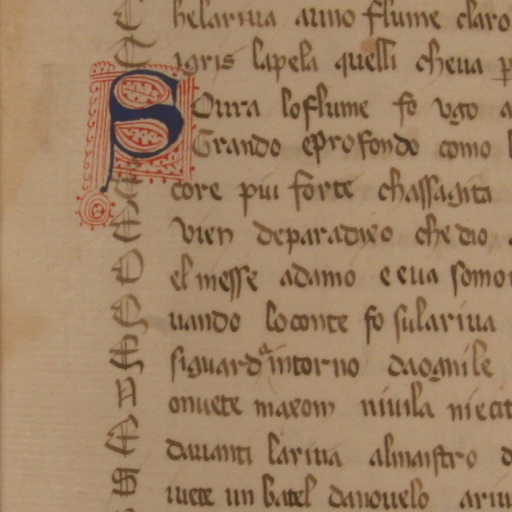 C helariua auino flume claro
T igris lapela quelli cheua
S Oura loflume fo vgo a
Grando eprofondo como l
core piu forte chassagita
E vien deparadixo che dio
D el messe adamo e eua somo
Q uando loconte fo sulariua
E siguarda intorno daogni le
N onuete maxom ni uila ni ecit
E dauanti lariua almaistro d
S uete un batel dauouelo ariu